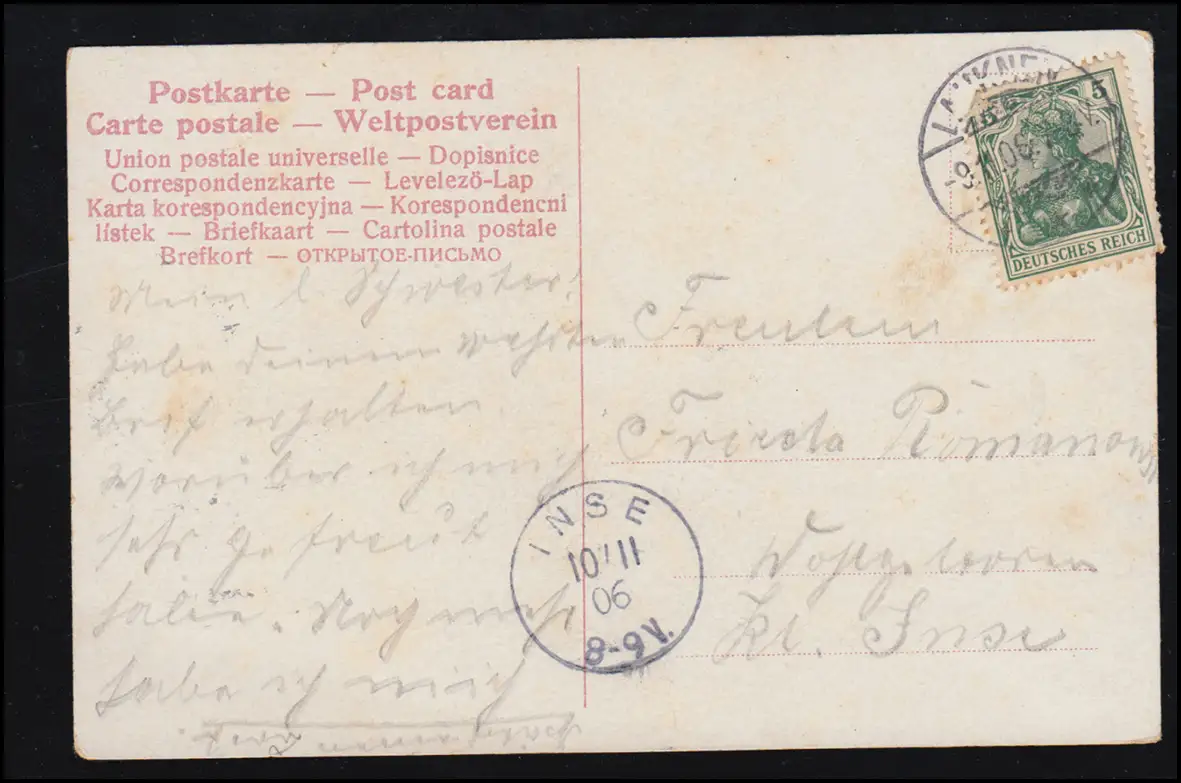 Postkarte — Post card
Carte postale — Weltpostverein
Union postale universelle — Dopisnice
Correspondenzkarte — Levelezö-Lap
Karta korespondencyjna — Korespondencni
lístek — Briefkaart — Cartolina postale
Brefkort — ОТКРЫТОЕ-ПИСЬМО
Mein l. Schwester!
habe deinen wehrten
Brif erhalten
worüber ich mich
sehr gefreut
habe. Noch mehr
habe ich mich
5
DEUTSCHES REICH
Freulein
Frieda Romanows
Wohlgeboren
Kl. Inse
INSE
10 11
06
8-9V.